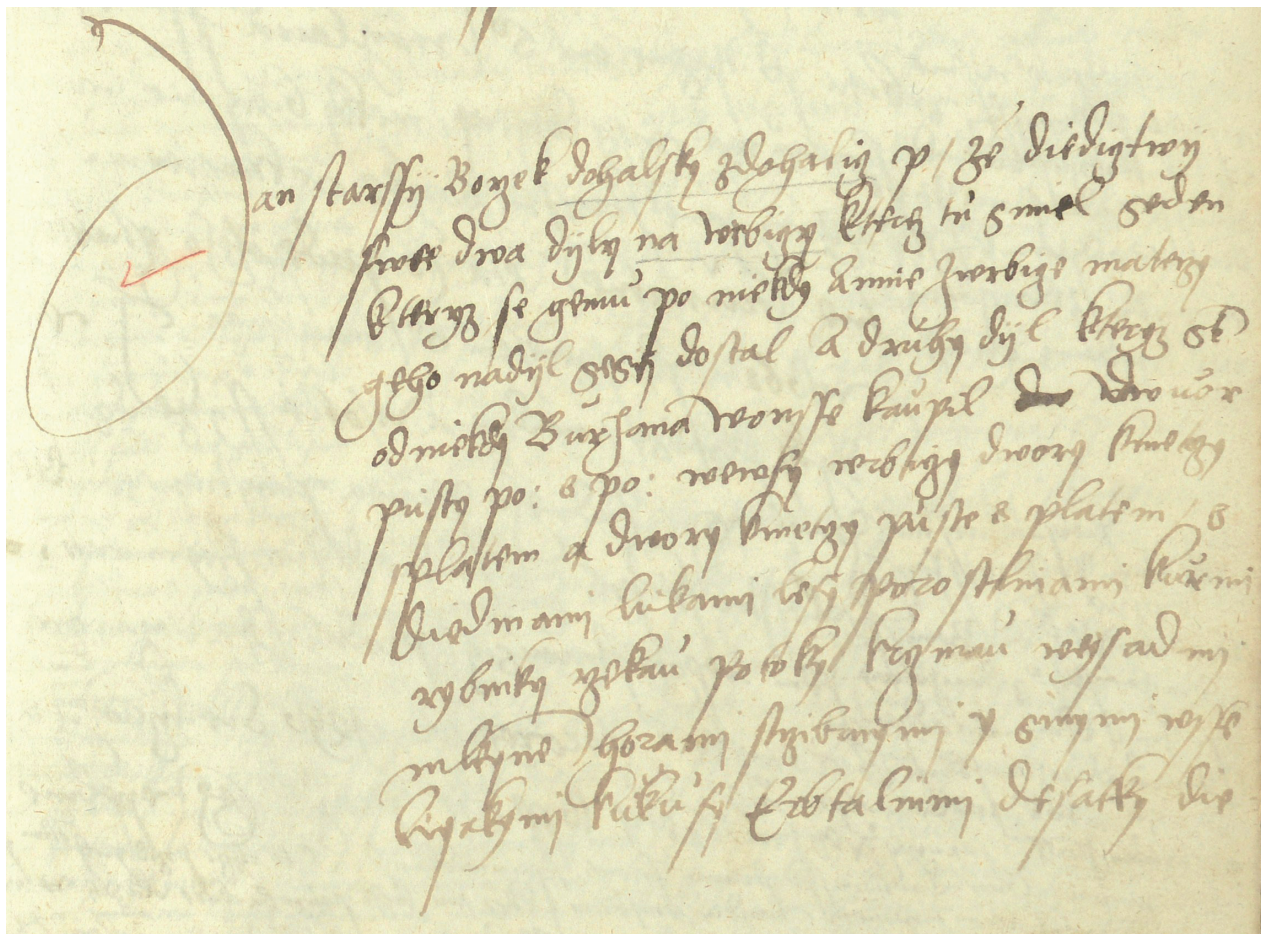 Jan starssy Borzek dohalsky zdohaliz p / ze diedigtwij
swee dwa dyly na wrbiczy kterz tu gmiel geden
kteryz se gemu po niekdy Annie zwrbicze materzy
geho nadijl gegij dostal A druhy dyl kteryz gt
odniekdy Burzana wonsse kaupil dwuor
pusty po: s po: wewsy wrbiczy dwory kmetczy
splatem a dwory kmetczy puste s platem / s
diedinami lukami lesy porostlinami kurmi
rybniky rzekau potoky krczmau wegsadmi
mlegne horami strzibrnymi y ginymi wsse
ligakymi kukusy Erbtalnimi desatky die